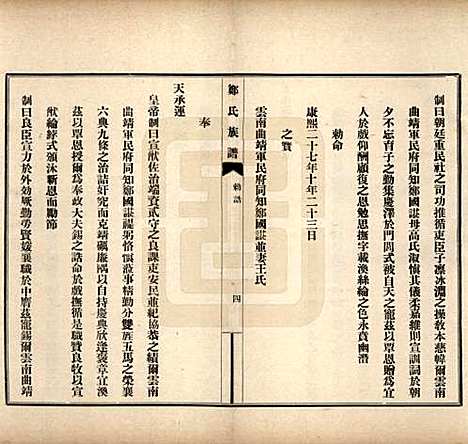 制曰朝廷重民社之司功推循吏臣子凜冰淵之操教本慈幃爾雲南
曲靖軍民府同知鄭國諶母高氏淑慎其儀柔嘉維則宣訓詞於朝
夕不忘育子之勤集慶澤於門閭式被自天之寵茲以覃恩贈爲宜
人於戲仰酬顧復之恩勉思撫字載渙絲綸之色永賁幽潛
勅命
康熙二十七年十年二十三日
之寶
雲南曲靖軍民府同知鄭國諶並妻王氏
鄭氏族譜
勅誥
四
奉
天承運
皇帝制曰宣猷佐治端資貳守之良課吏安民並紀協恭之績爾雲南
曲靖軍民府同知鄭國諶褆躬恪慎蒞事精勤分雙雁五馬之榮襄
六典九條之治詰奸究而克靖礪廉隅以自持慶典欣逢褒章宜渙
茲以覃恩授爾爲奉政大夫錫之誥命於戲撫循是職賢良牧以宣
猷綸綍式頒泳新恩而勵節
制曰良臣宣力於外効厥勤勞賢媛襄職於中膺茲寵錫爾雲南曲靖